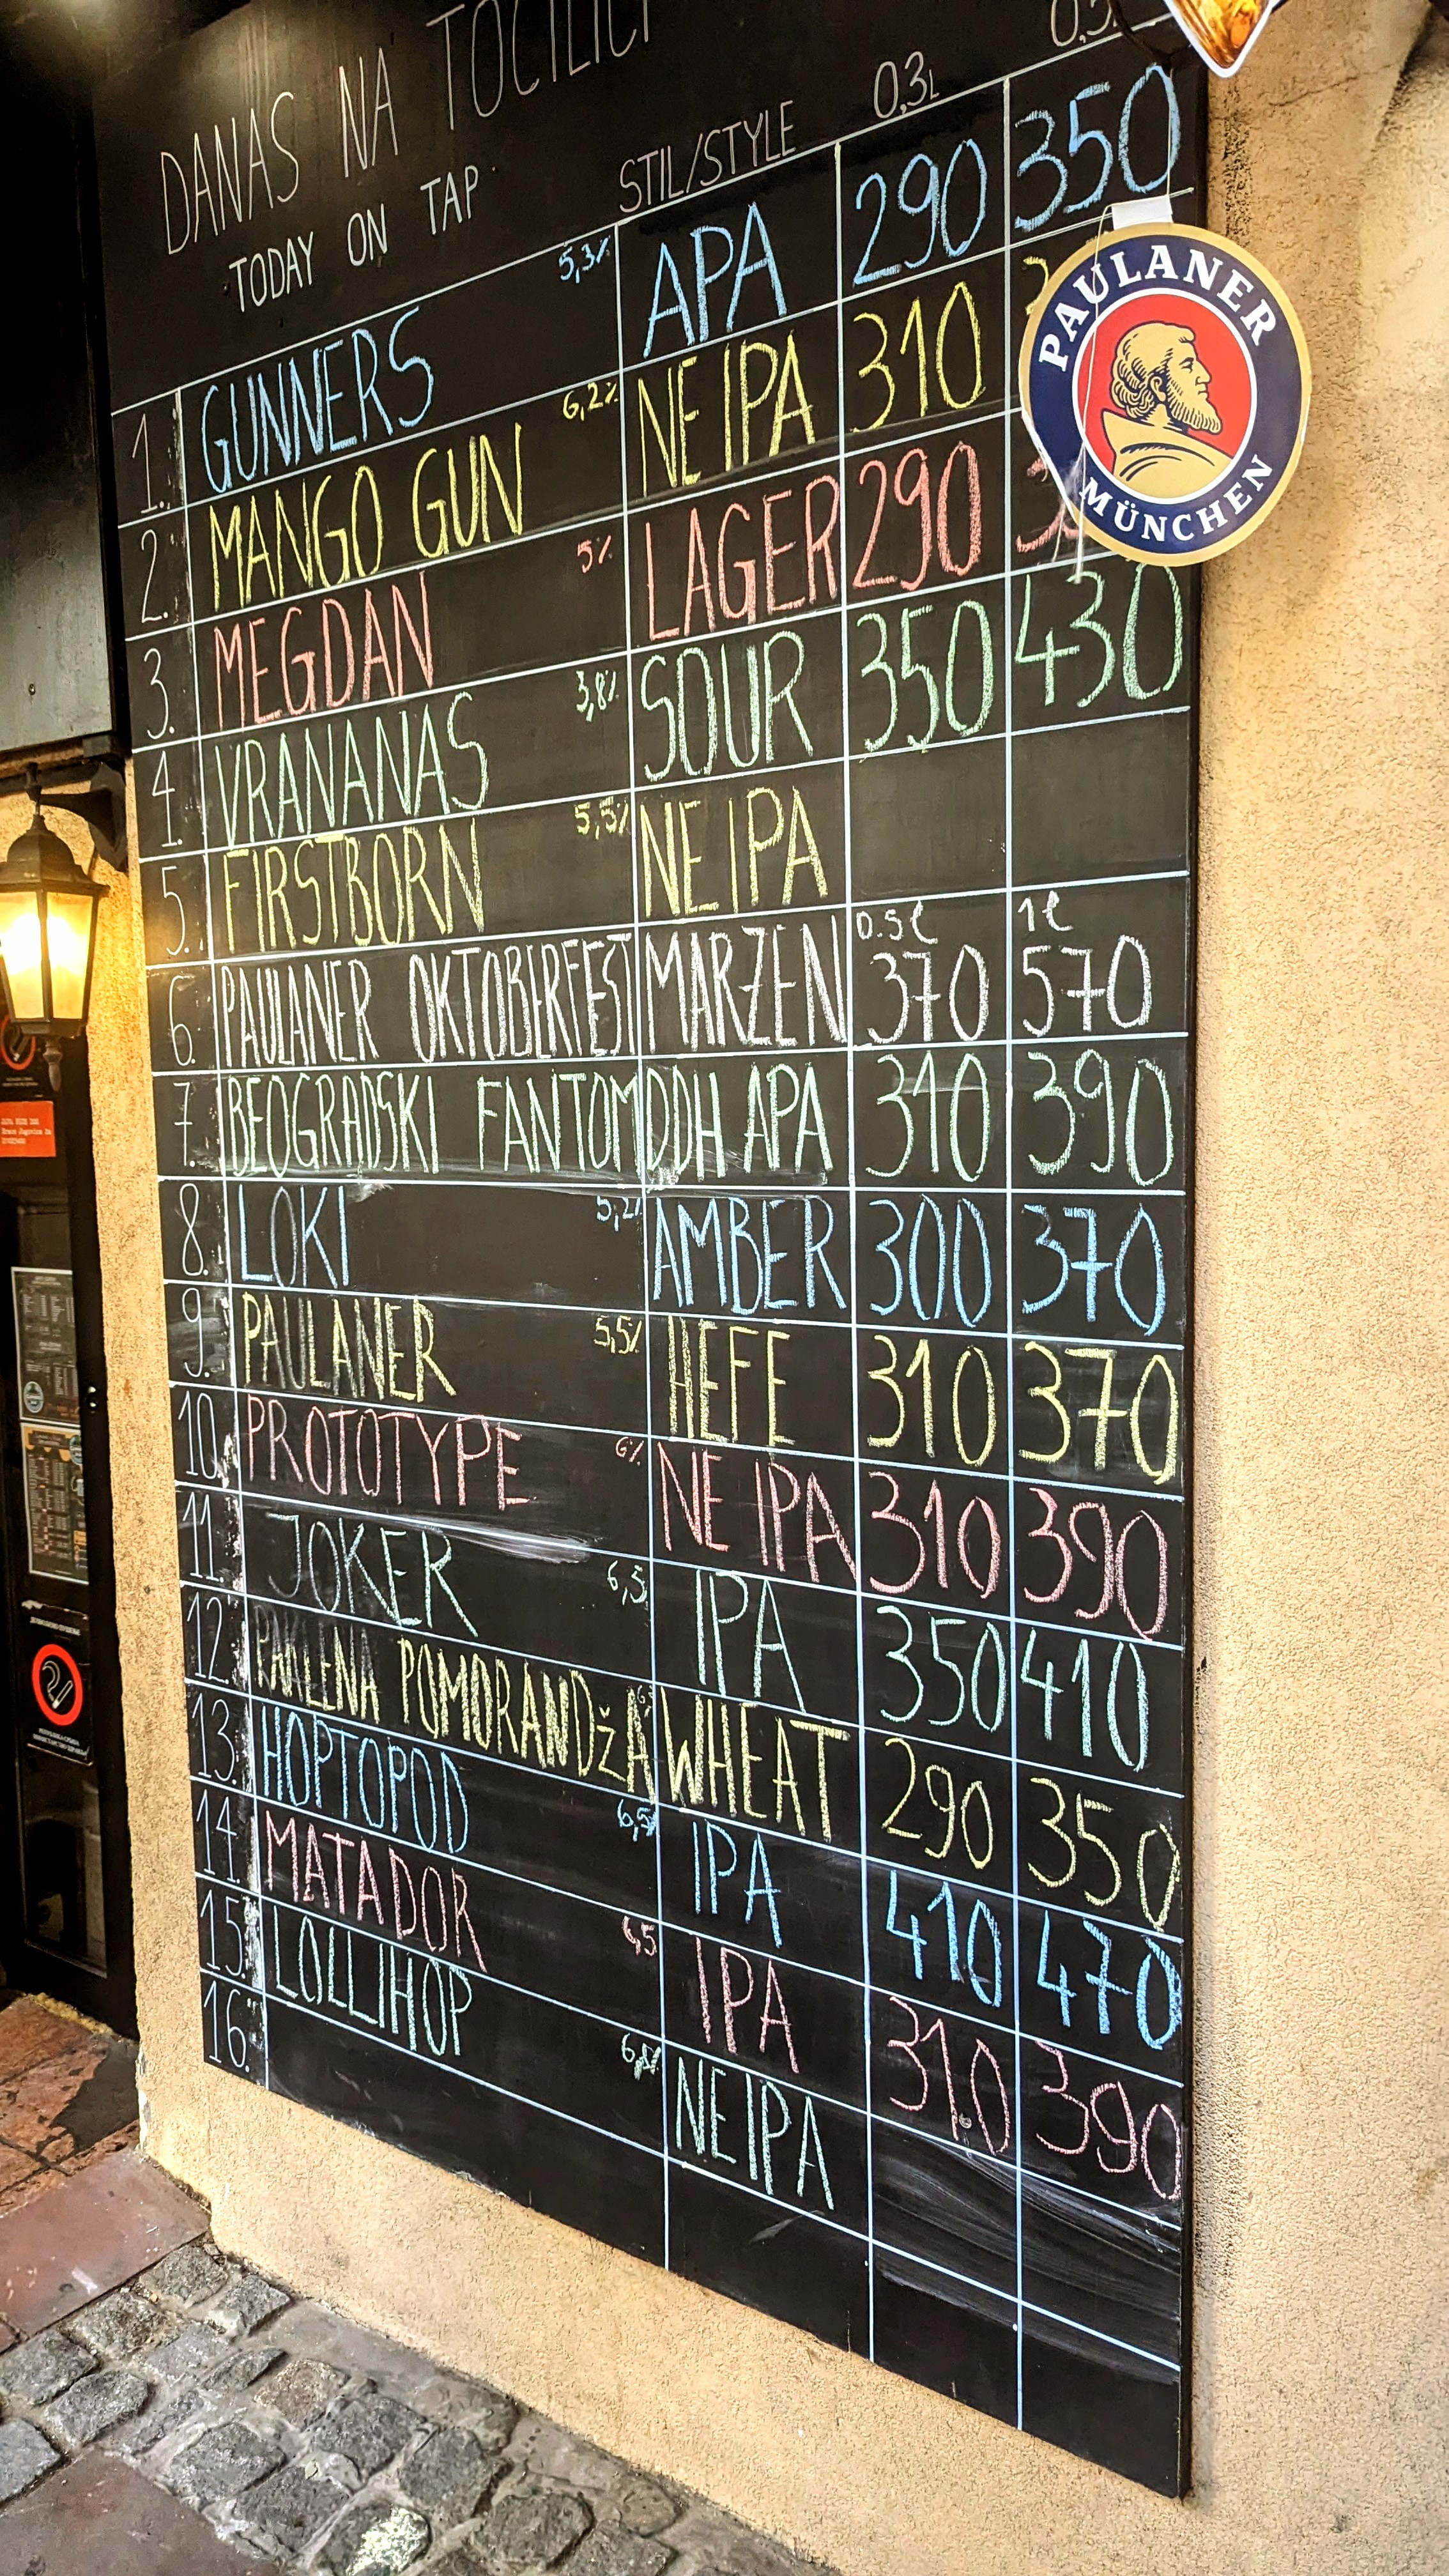 DANAS NA TOČILICI
TODAY ON TAP
STIL/STYLE 0,3L 0,5
1. GUNNERS 5,3% APA 290 350
2. MANGO GUN 6,2% NEIPA 310
3. MEGDAN 5% LAGER 290
4. VRANANAS 3,8% SOUR 350 430
5. FIRSTBORN 5,5% NEIPA
0.5l 1l
6. PAULANER OKTOBERFEST MARZEN 370 570
7. BEOGRADSKI FANTOM DDH APA 310 390
8. LOKI 5,2% AMBER 300 370
9. PAULANER 5,5% HEFE 310 370
10. PROTOTYPE 6% NE IPA 310 390
11. JOKER 6,5 IPA 350 410
12. PAKLENA POMORANDŽA WHEAT 290 350
13. HOPTOPOD 6,5% IPA 410 470
14. MATADOR IPA 310 390
15. LOLLIHOP NEIPA
16.
PAULANER
MÜNCHEN